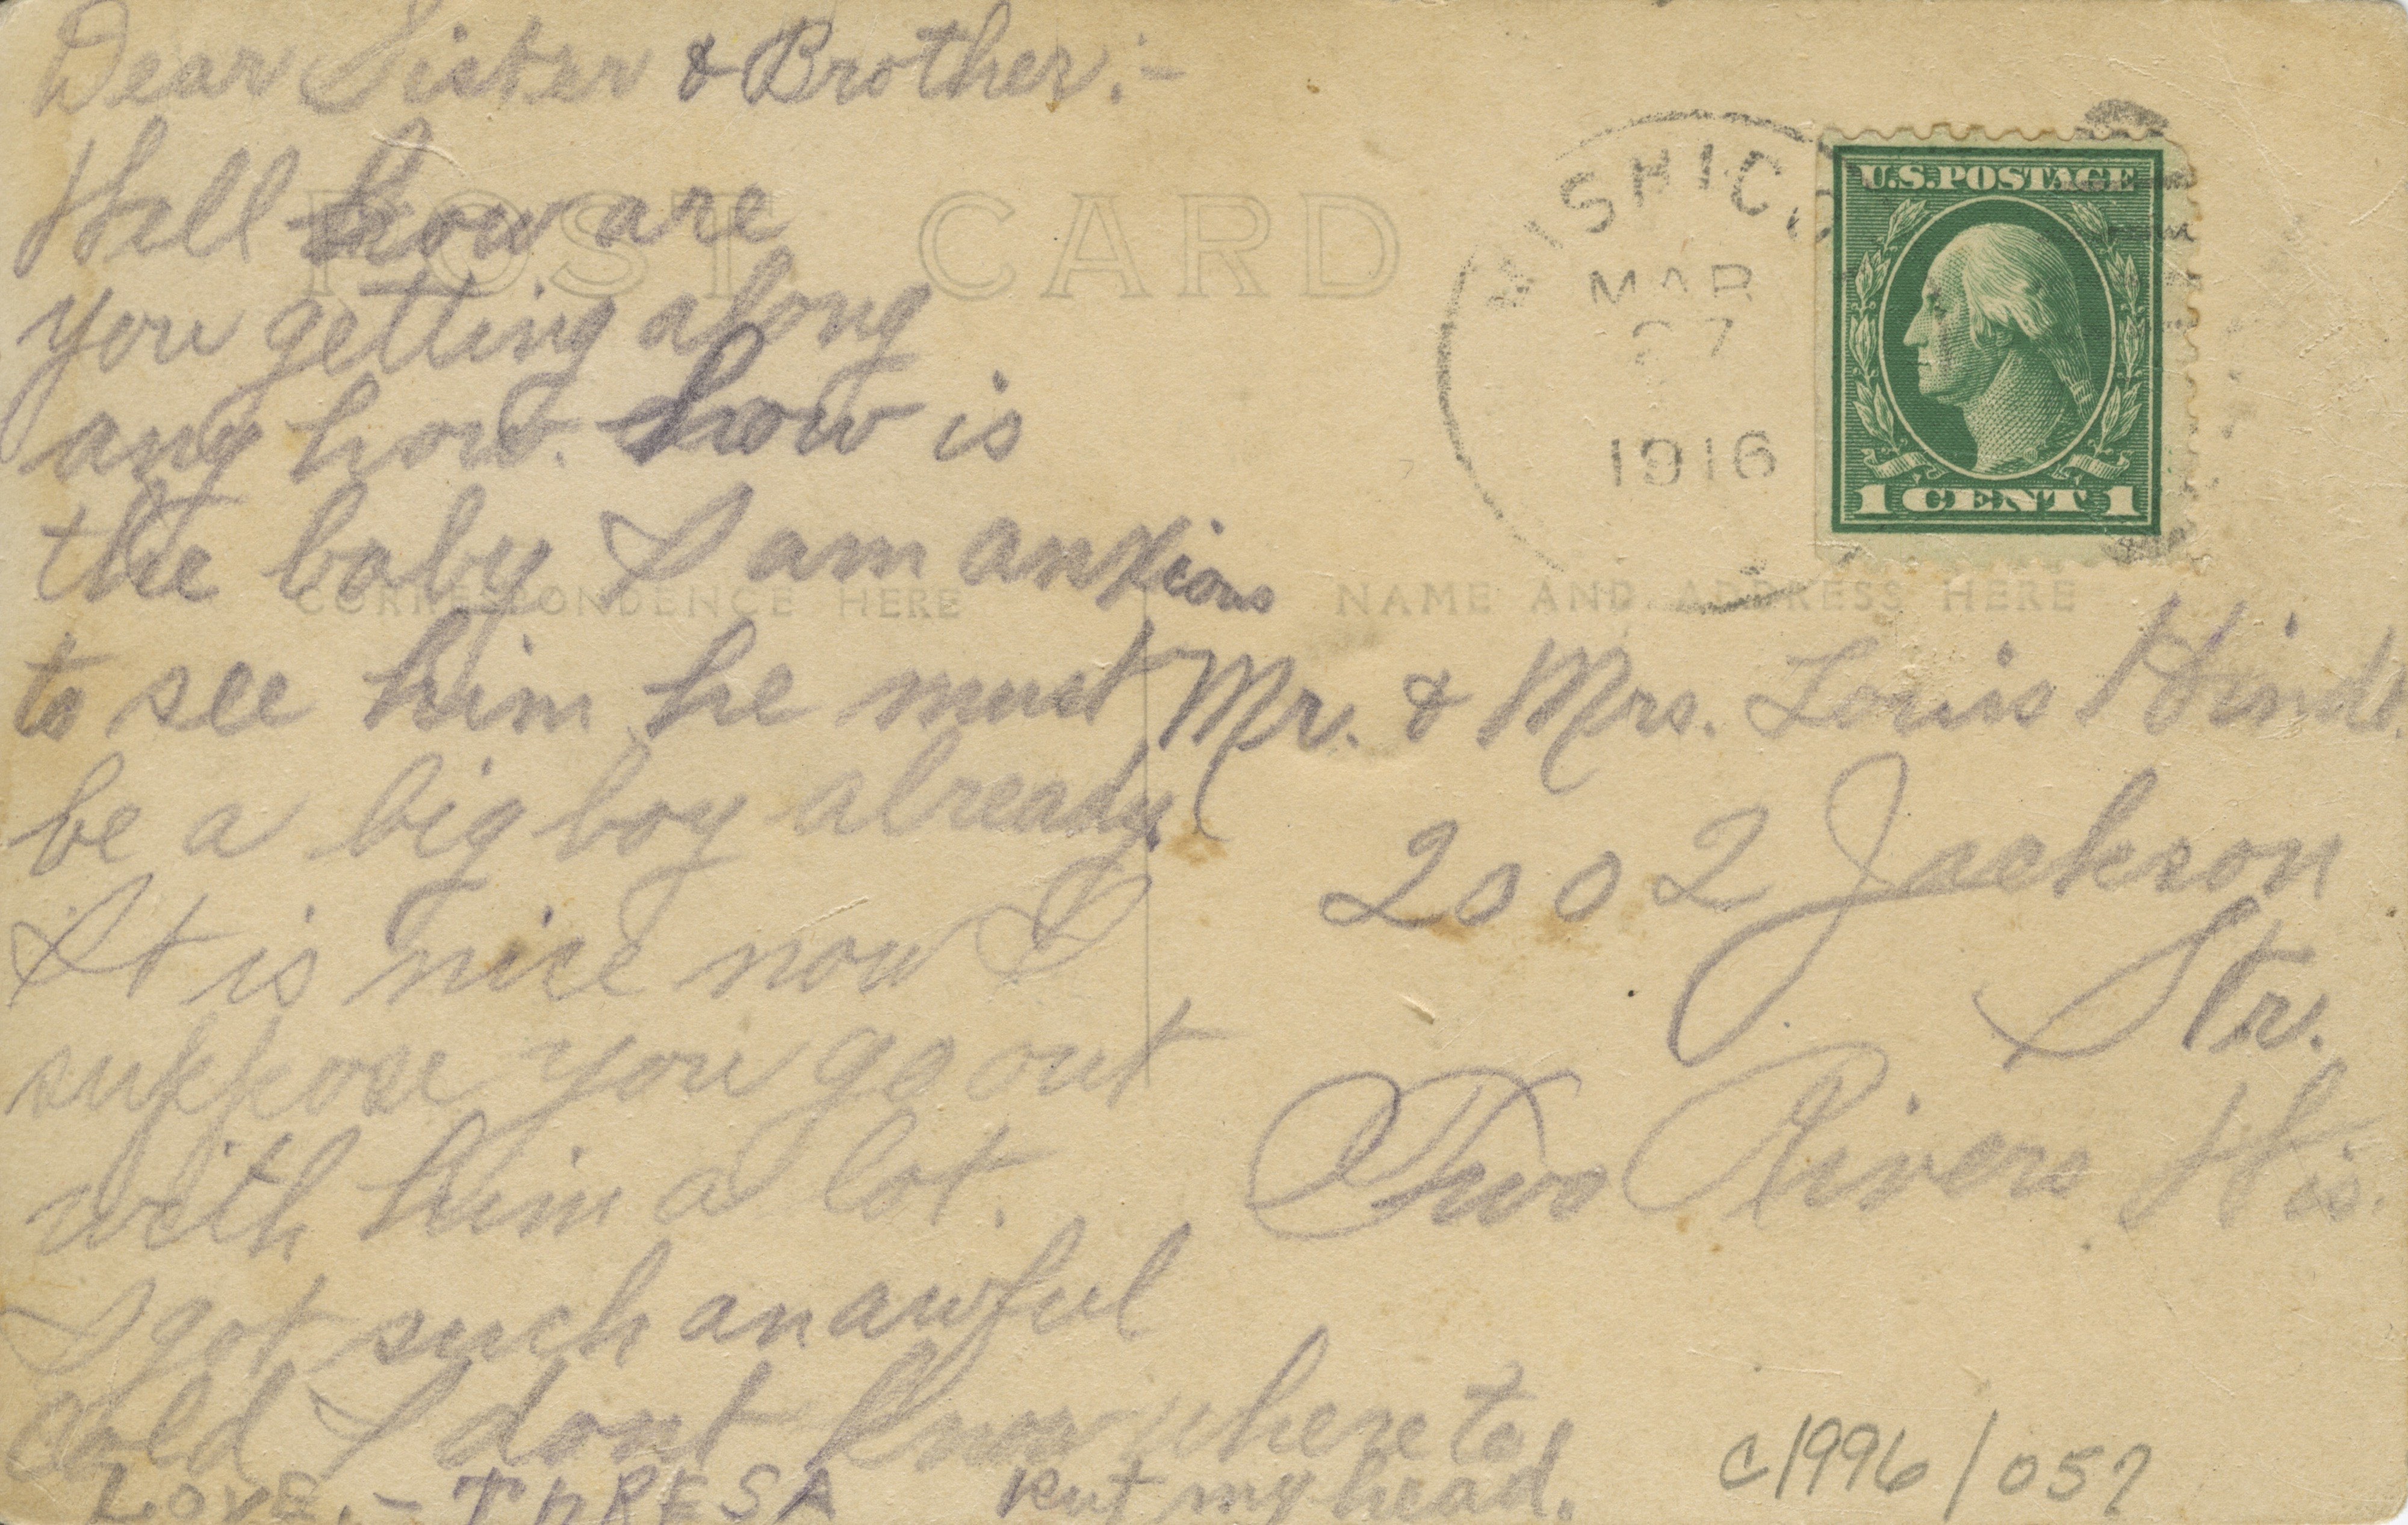 Dear Sister & Brother:-
Well how are
you getting along
any how. how is
the baby I am anxious
to see him he must
be a big boy already.
It is nice now I
suppose you go out
with him a lot.
I got such an awful
cold I dont know where to
put my head.
LOVE.- ThRESA
POST CARD
CORRESPONDENCE HERE
NAME AND ADDRESS HERE
MISHICO
MAR
27
1916
U.S. POSTAGE
1 CENT 1
Mr. & Mrs. Louis
2002 Jackson
Str.
Two Rivers Wis.
c1996/057